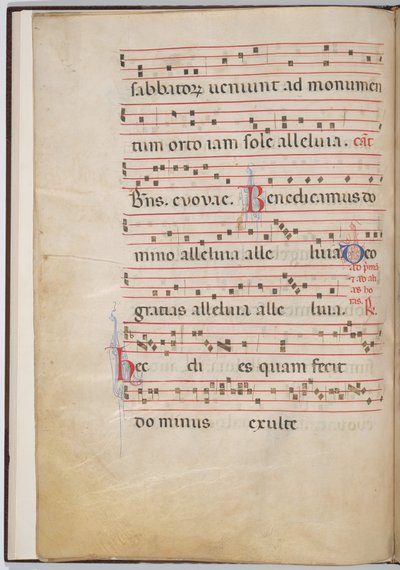 sabbatoꝝ ueniunt ad monumen
tum orto iam sole alleluia. cãt
Bñs. evovae. Benedicamus do
mino alleluia alle luia. Deo
gratias alleluia alle luia. R.
hec di es quam fecit
dominus exulte